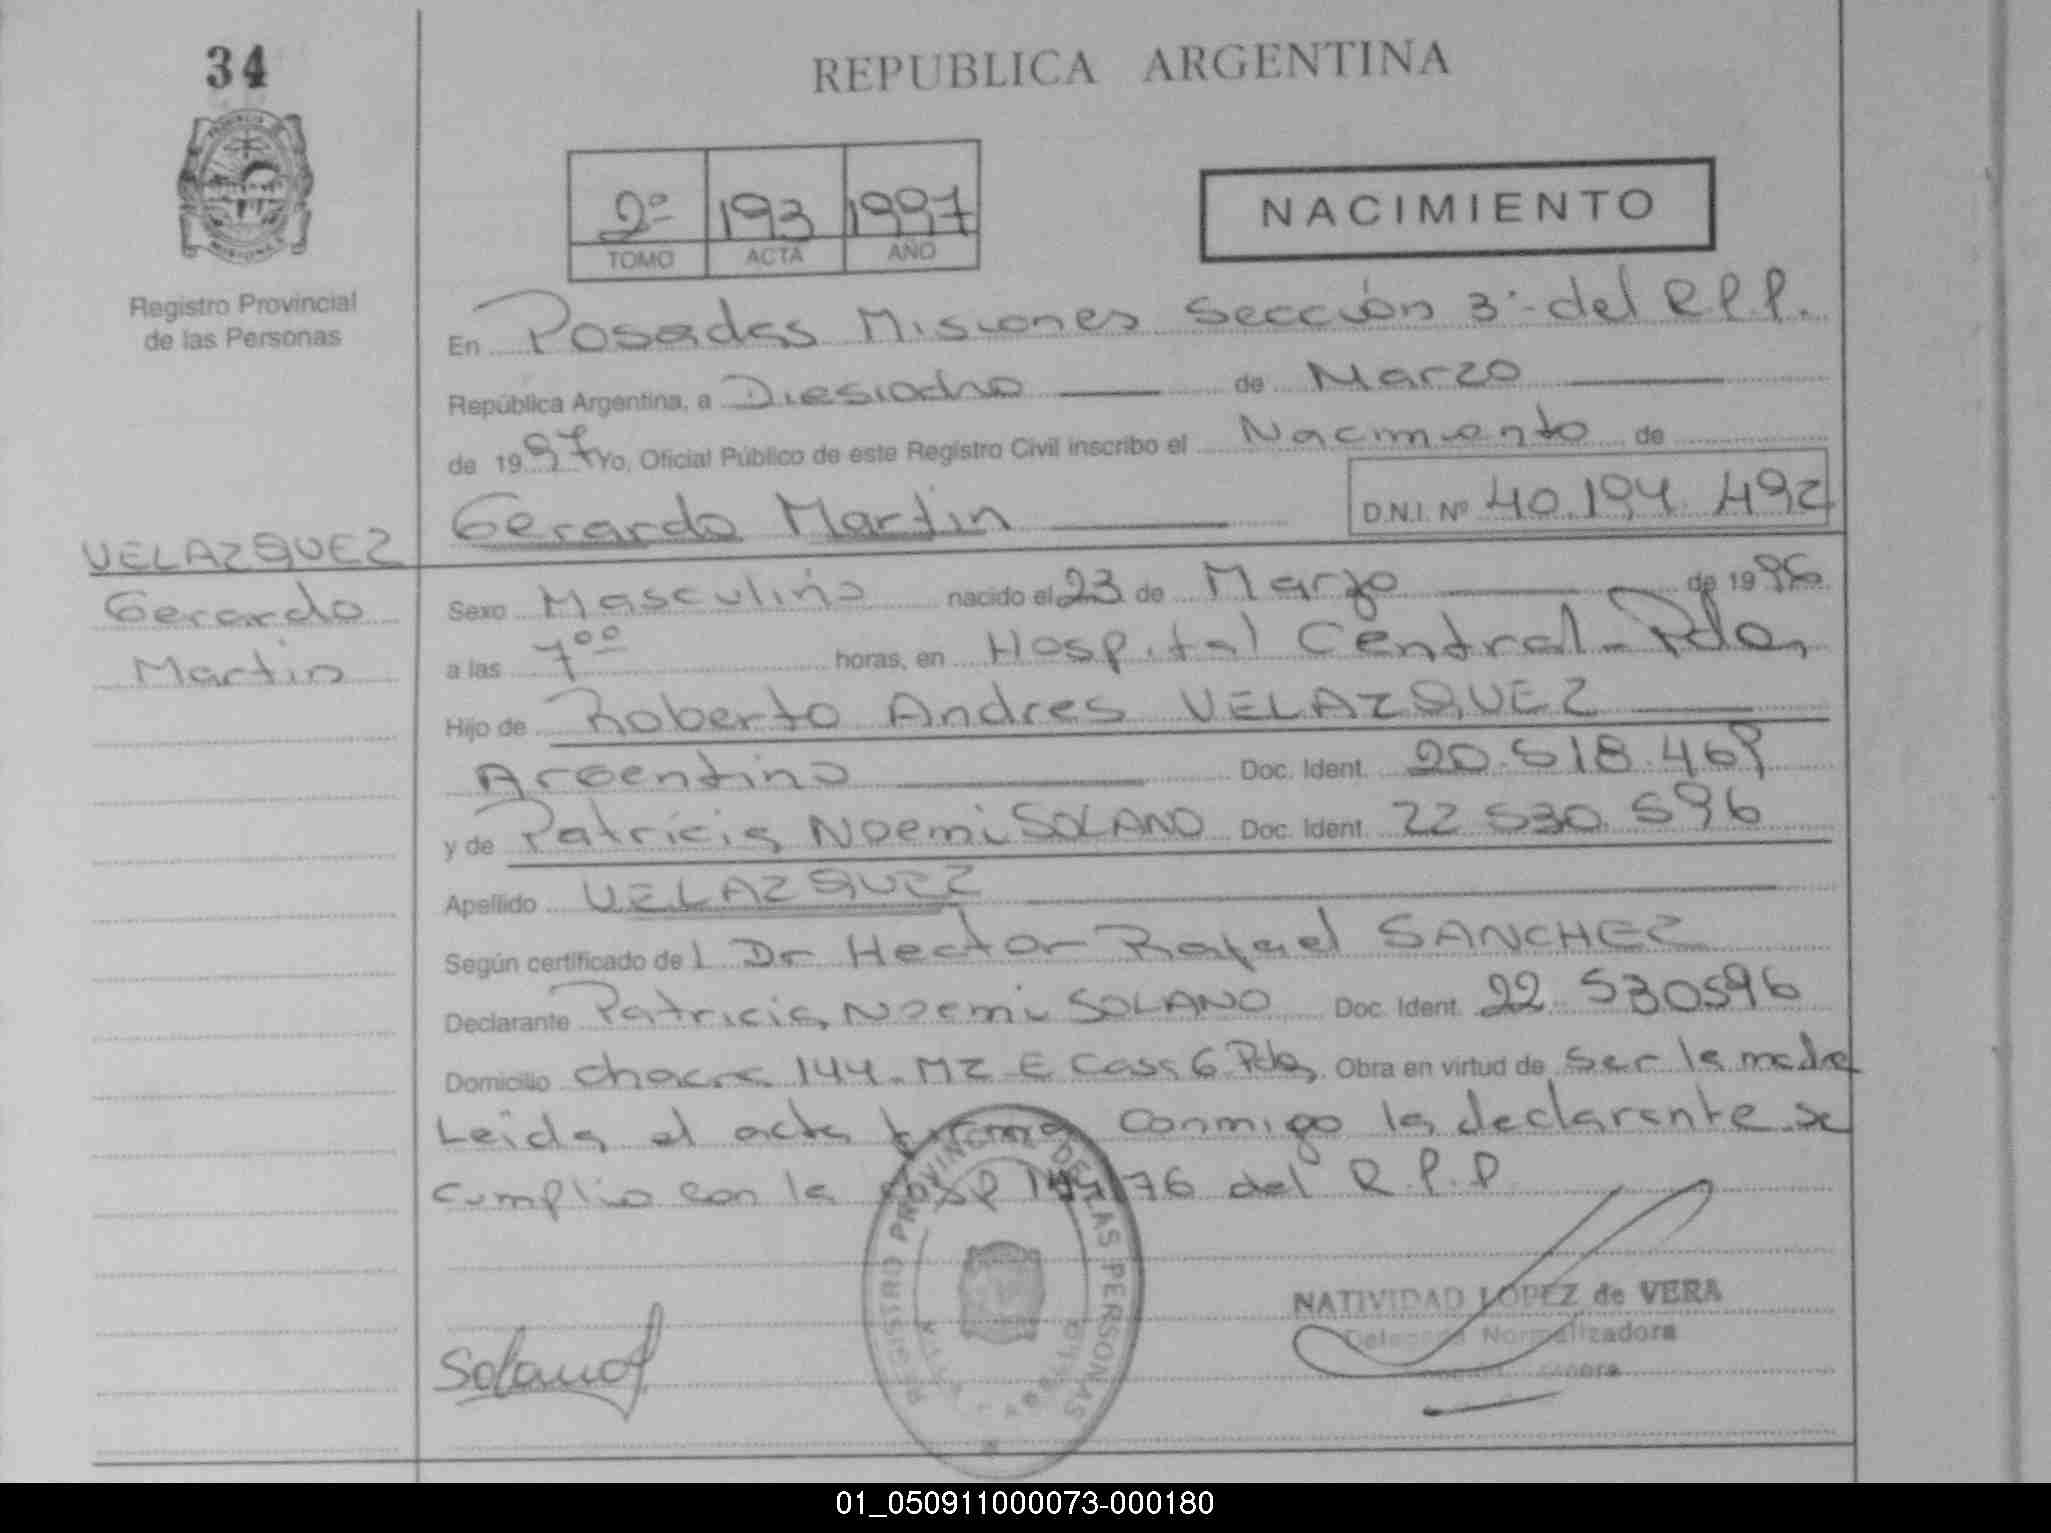 34
REPUBLICA ARGENTINA
2º 193 1997
TOMO ACTA AÑO
NACIMIENTO
Registro Provincial
de las Personas
En Posadas Misiones Sección 3ª del R.P.P.
República Argentina, a Diesiocho de Marzo
de 1997 Yo, Oficial Público de este Registro Civil inscribo el Nacimiento de
Gerardo Martin D.N.I. Nº 40.194.492
VELAZQUEZ
Gerardo
Martin
Sexo Masculino nacido el 23 de Marzo de 1996
a las 7ºº horas, en Hospital Central - Pdas
Hijo de Roberto Andres VELAZQUEZ
Argentino Doc. Ident. 20.518.469
y de Patricia Noemi SOLANO Doc. Ident. 22 530.596
Apellido VELAZQUEZ
Según certificado del Dr Hector Rafael SANCHEZ
Declarante Patricia Noemi SOLANO Doc. Ident. 22.530596
Domicilio chacra 144. MZ E Casa 6 Pdas Obra en virtud de ser la madre
Leida el acta firma conmigo la declarante se
cumplio con la Disp 144/76 del R.P.P
REGISTRO PROVINCIAL DE LAS PERSONAS
NATIVIDAD LOPEZ de VERA
Delegada Normalizadora
Solano
01_050911000073-000180